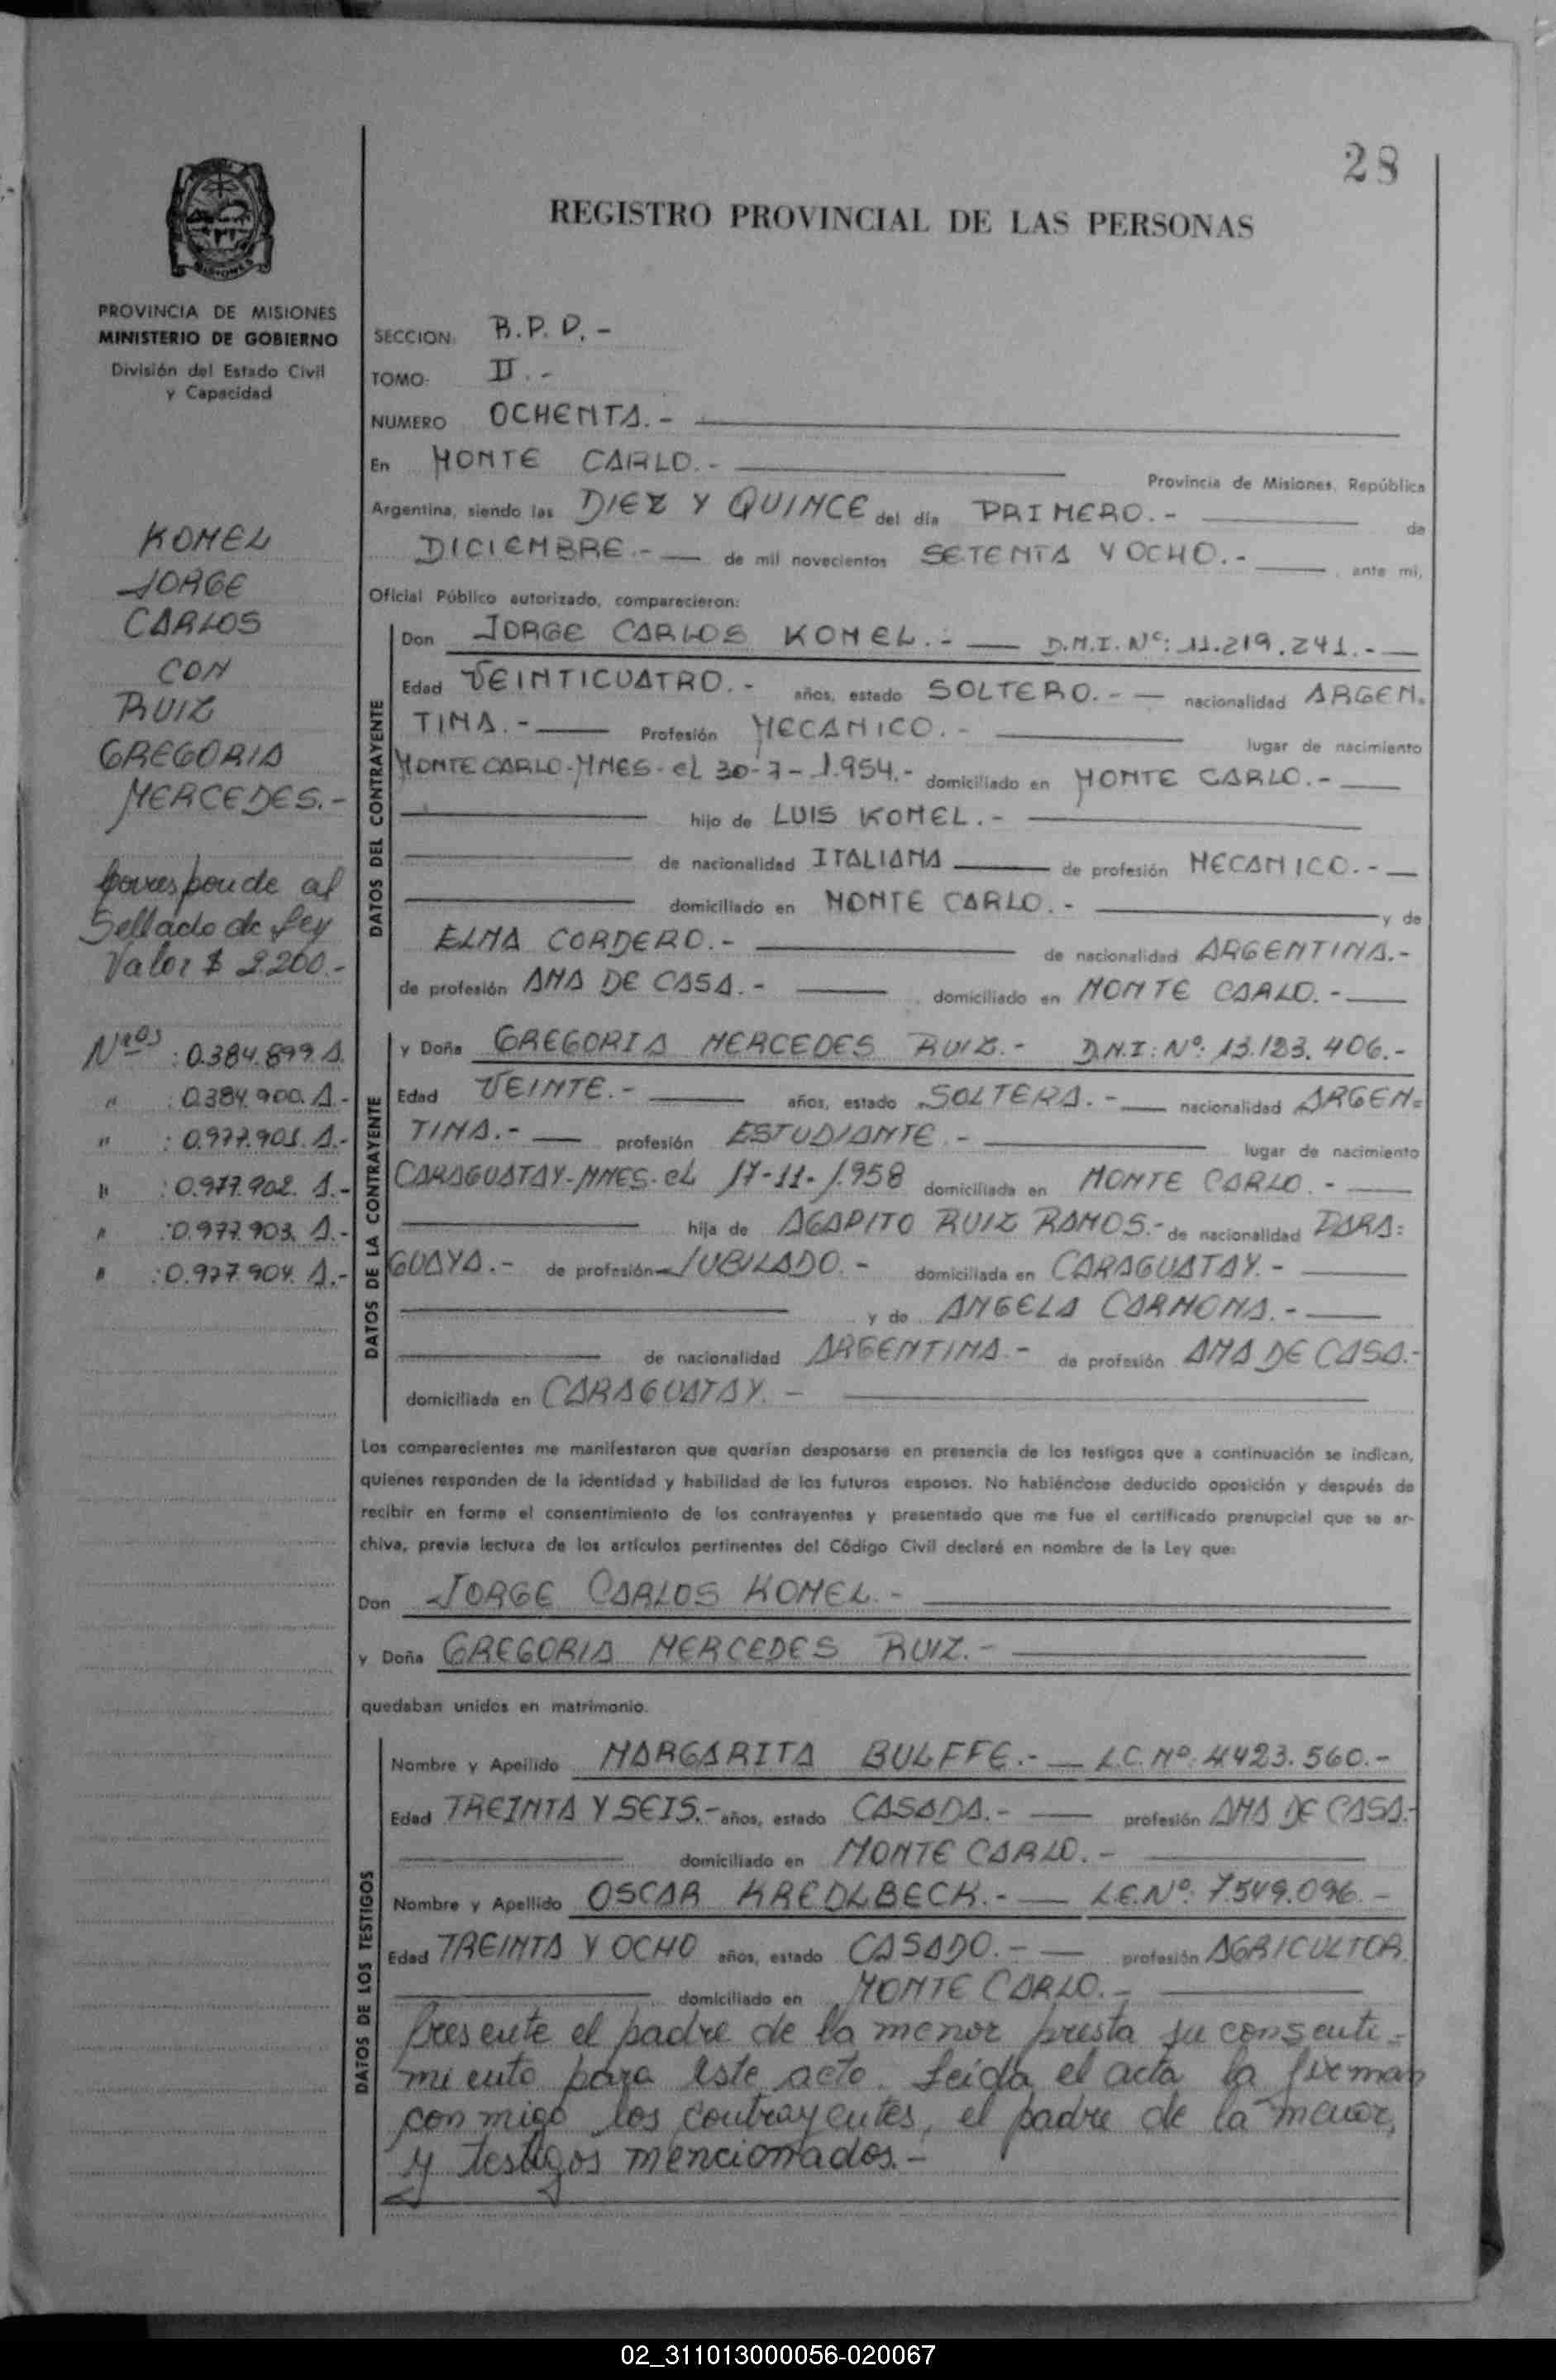 28
REGISTRO PROVINCIAL DE LAS PERSONAS
MISIONES
PROVINCIA DE MISIONES
MINISTERIO DE GOBIERNO
División del Estado Civil
y Capacidad
KOMEL
JORGE
CARLOS
CON
RUIZ
GREGORIA
MERCEDES.-
Corresponde al
Sellado de Ley
Valor $ 2.200.-
Nros : 0.384.899. A.
" : 0.384.900. A.-
" : 0.977.901. A.-
" : 0.977.902. A.-
" : 0.977.903. A.-
" : 0.977.904. A.-
SECCION: B.P.D.-
TOMO: II.-
NUMERO OCHENTA.-
En MONTE CARLO.- Provincia de Misiones, República
Argentina, siendo las DIEZ Y QUINCE del día PRIMERO.- de
DICIEMBRE.- de mil novecientos SETENTA Y OCHO.- ante mi,
Oficial Público autorizado, comparecieron:
DATOS DEL CONTRAYENTE
Don JORGE CARLOS KOMEL.- D.N.I. Nº: 11.219.241.-
Edad VEINTICUATRO.- años, estado SOLTERO.- nacionalidad ARGEN-
TINA.- Profesión MECANICO.- lugar de nacimiento
MONTE CARLO-MNES- el 30-7-1.954.- domiciliado en MONTE CARLO.-
hijo de LUIS KOMEL.-
de nacionalidad ITALIANA de profesión MECANICO.-
domiciliado en MONTE CARLO.- y de
ELMA CORDERO.- de nacionalidad ARGENTINA.-
de profesión AMA DE CASA.- domiciliado en MONTE CARLO.-
DATOS DE LA CONTRAYENTE
y Doña GREGORIA MERCEDES RUIZ.- D.N.I: Nº: 13.123.406.-
Edad VEINTE.- años, estado SOLTERA.- nacionalidad ARGEN=
TINA.- profesión ESTUDIANTE.- lugar de nacimiento
CARAGUATAY-MNES- el 17-11-1.958 domiciliada en MONTE CARLO.-
hija de AGAPITO RUIZ RAMOS.- de nacionalidad PARA=
GUAYA.- de profesión JUBILADO.- domiciliada en CARAGUATAY.-
y de ANGELA CARMONA.-
de nacionalidad ARGENTINA.- de profesión AMA DE CASA.-
domiciliada en CARAGUATAY.-
Los comparecientes me manifestaron que querían desposarse en presencia de los testigos que a continuación se indican,
quienes responden de la identidad y habilidad de los futuros esposos. No habiéndose deducido oposición y después de
recibir en forma el consentimiento de los contrayentes y presentado que me fue el certificado prenupcial que se ar-
chiva, previa lectura de los artículos pertinentes del Código Civil declaré en nombre de la Ley que:
Don JORGE CARLOS KOMEL.-
y Doña GREGORIA MERCEDES RUIZ.-
quedaban unidos en matrimonio.
DATOS DE LOS TESTIGOS
Nombre y Apellido MARGARITA BULFFE.- L.C. Nº: 4.423.560.-
Edad TREINTA Y SEIS.- años, estado CASADA.- profesión AMA DE CASA.-
domiciliado en MONTE CARLO.-
Nombre y Apellido OSCAR KREDLBECK.- L.E. Nº: 7.549.096.-
Edad TREINTA Y OCHO años, estado CASADO.- profesión AGRICULTOR.
domiciliado en MONTE CARLO.-
Presente el padre de la menor presta su consenti-
miento para este acto. Leida el acta la firman
conmigo los contrayentes, el padre de la menor,
y testigos mencionados.-
02_311013000056-020067